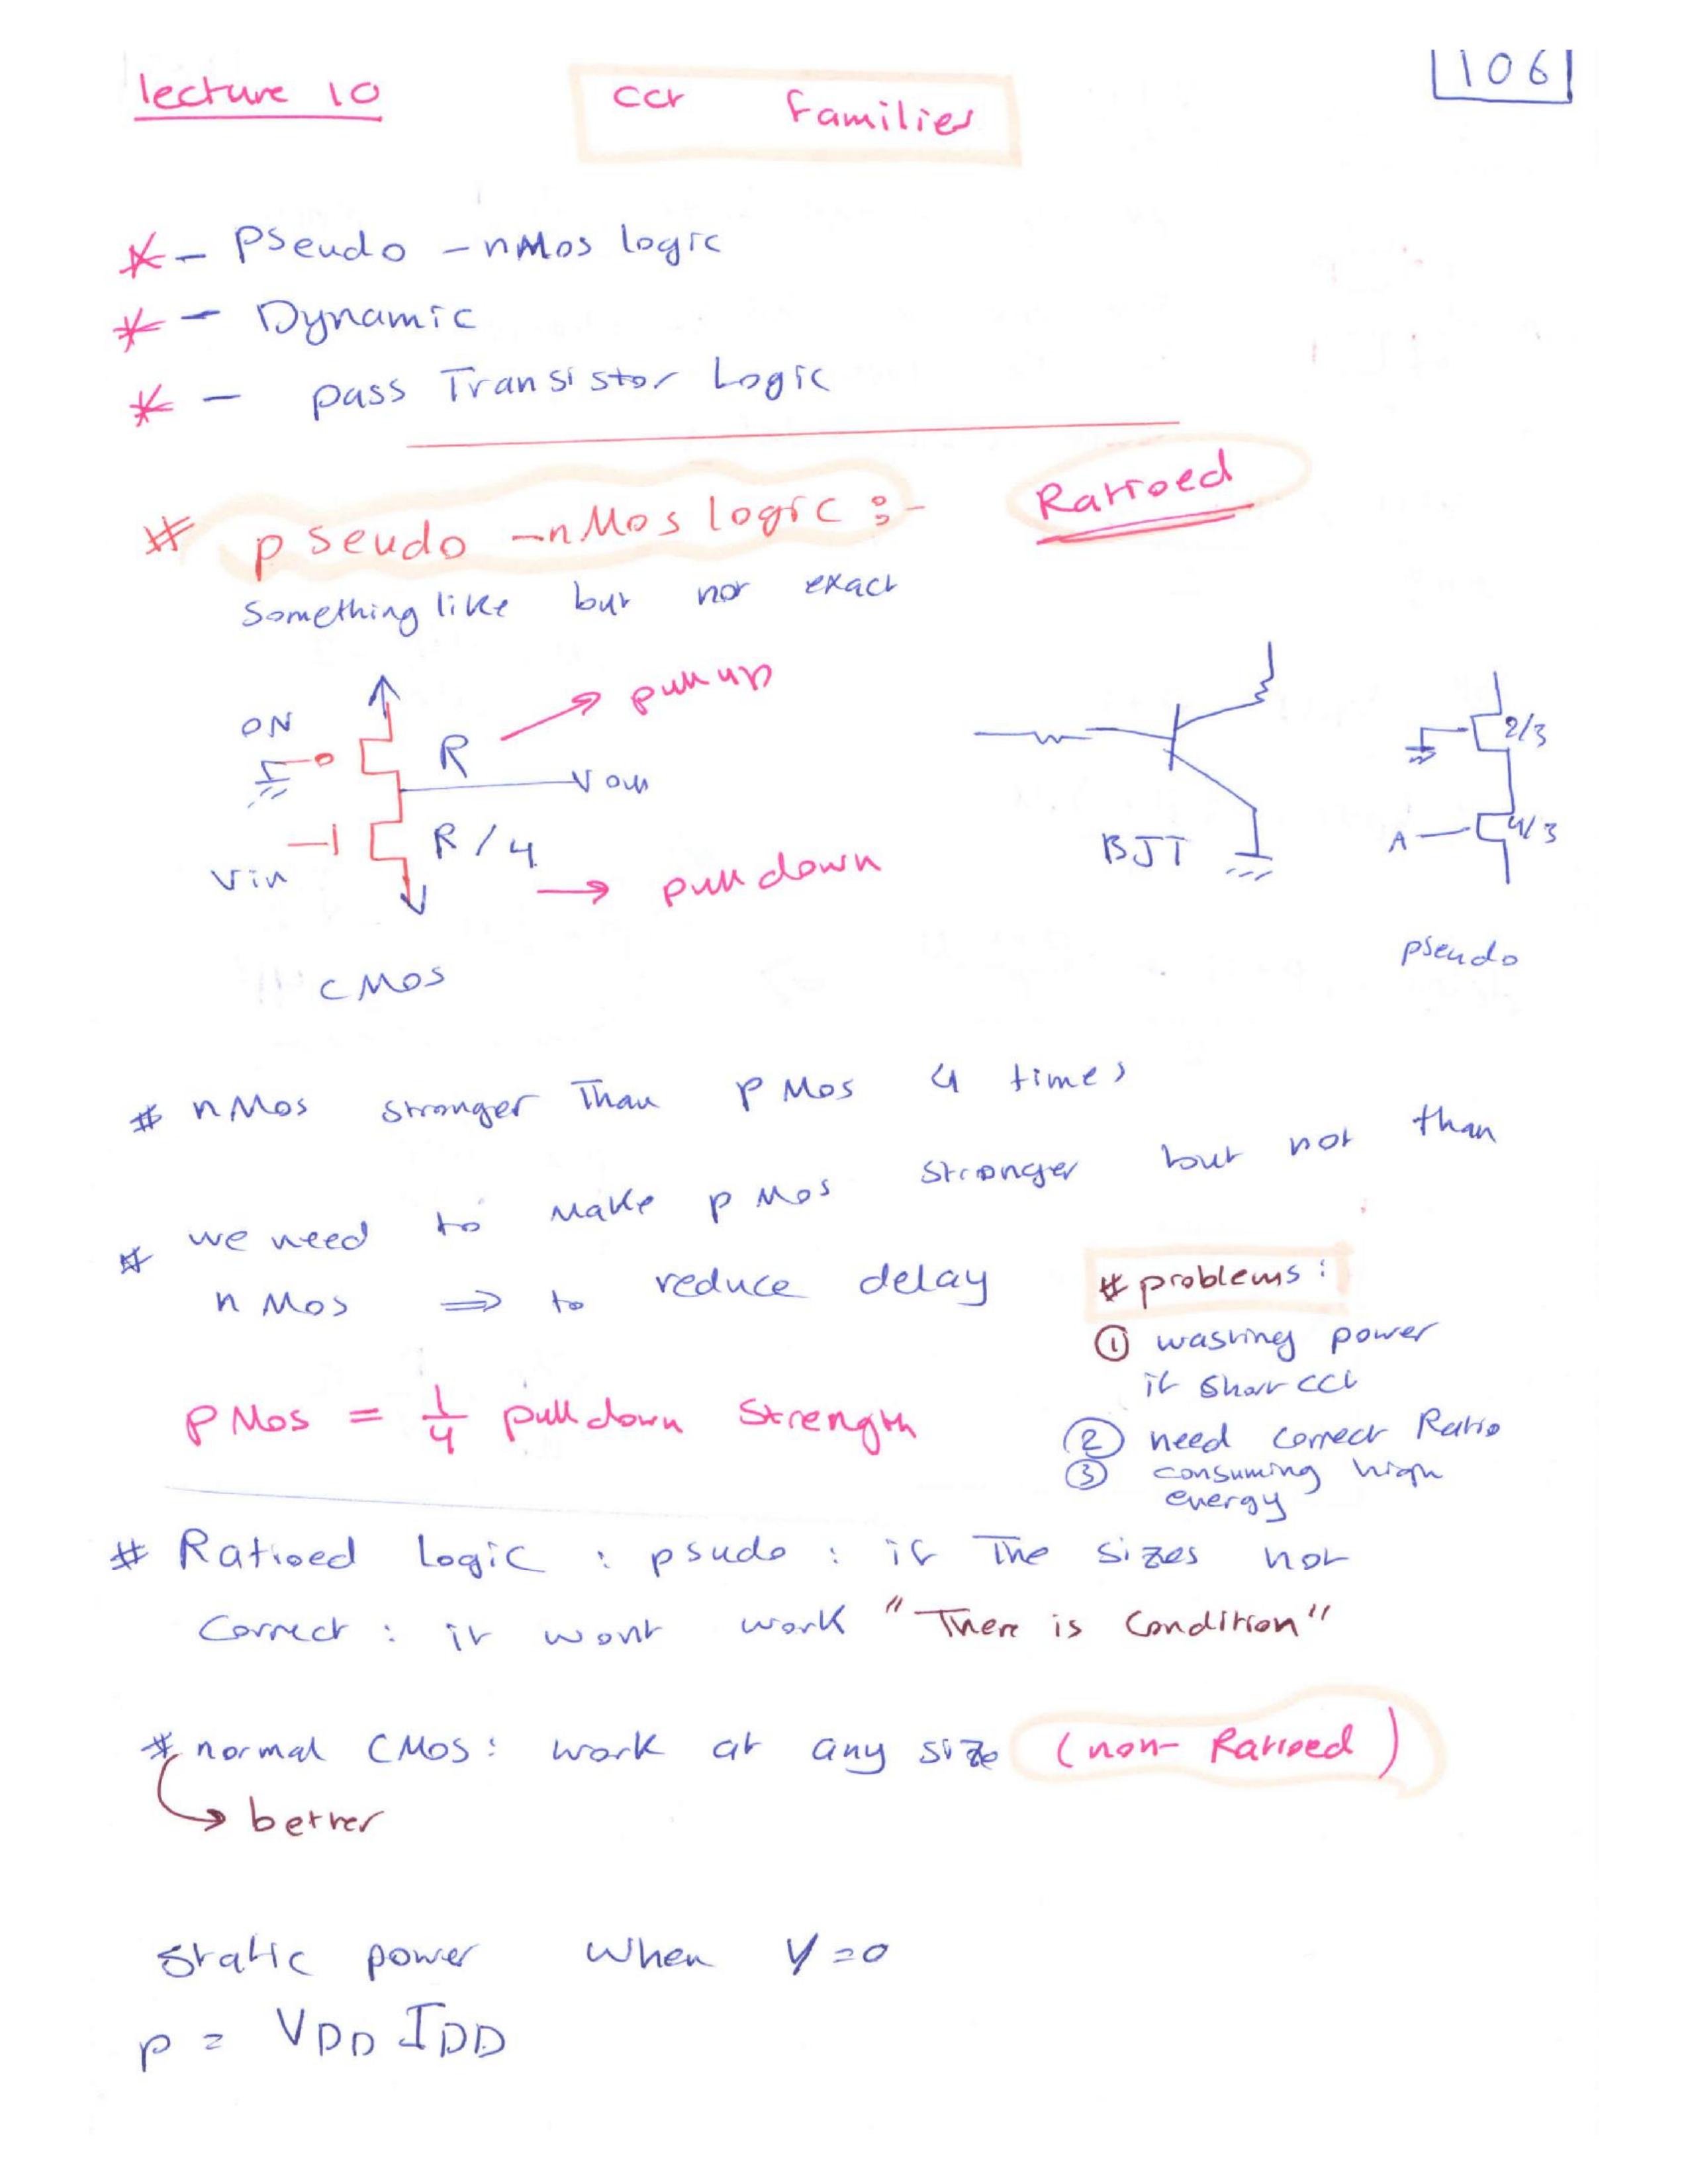 lecture 10
cct families
106
* - Pseudo - nMos logic
* - Dynamic
* - pass Transistor Logic
# pseudo - nMos logic :-
Ratioed
Something like but not exact
ON
R
pull up
Vout
R/4
Vin
pull down
CMOS
BJT
2/3
A
4/3
pseudo
# nMos stronger Than pMos 4 times
# we need to make pMos stronger but not than
nMos ⇒ to reduce delay
pMos = 1/4 pull down Strength
# problems :
① wasting power
if short cct
② need correct Ratio
③ consuming high
energy
# Ratioed Logic : psudo : if The sizes not
Correct : it wont work "There is Condition"
* normal CMOS : work at any size (non-Ratioed)
→ better
Static power when Y=0
P = VDD IDD